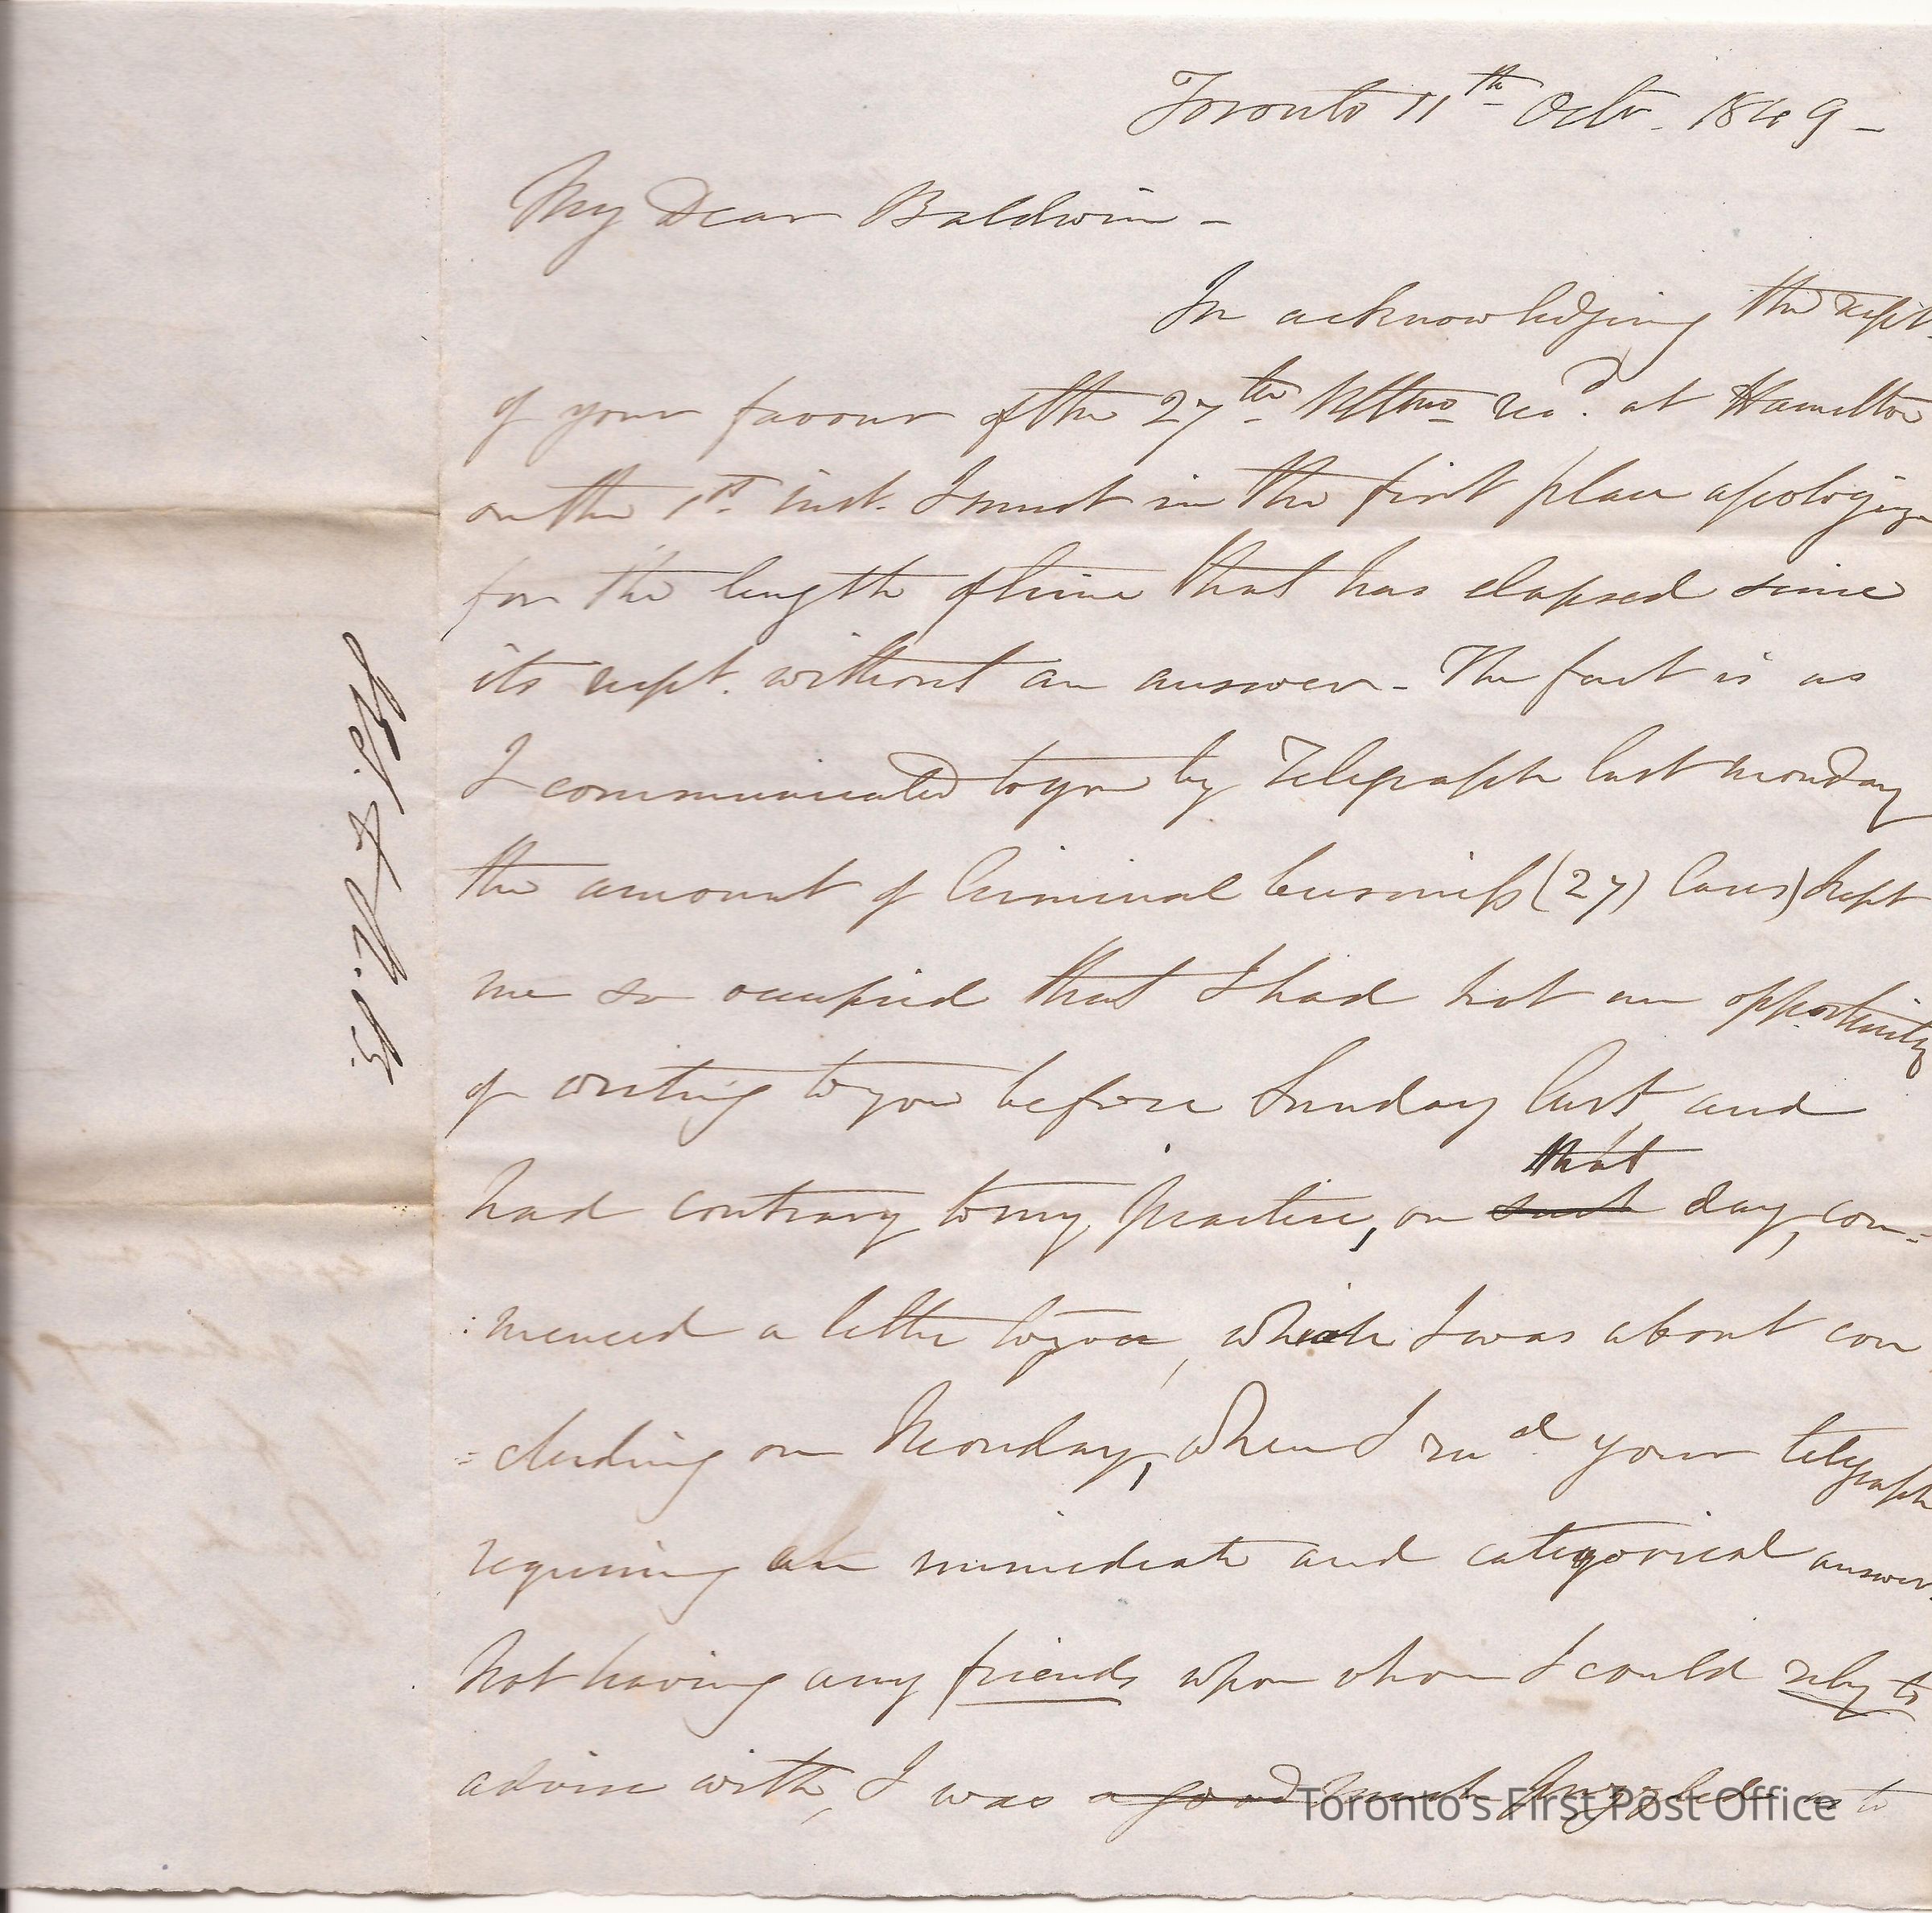 Toronto 11th Octr. 1849 -
My Dear Baldwin -
In acknowledging the rcpt.
of your favour of the 27th Ultmo recd. at Hamilton
on the 1st. inst. I must in the first place apologize
for the length of time that has elapsed since
its rcpt. without an answer - The fact is as
I communicated to you by Telegraph last monday
the amount of Criminal business (27) Cases) kept
me so occupied that I had not an opportunity
of writing to you before Sunday last, and
that
had contrary to my practice, on such day, com=
:menced a letter to you, which I was about con
=cluding on Monday, when I recd your telegraph
requiring an immediate and categorical answer.
Not having any friends upon whom I could rely to
advise with, I was a good much puzzled as to
Toronto's First Post Office